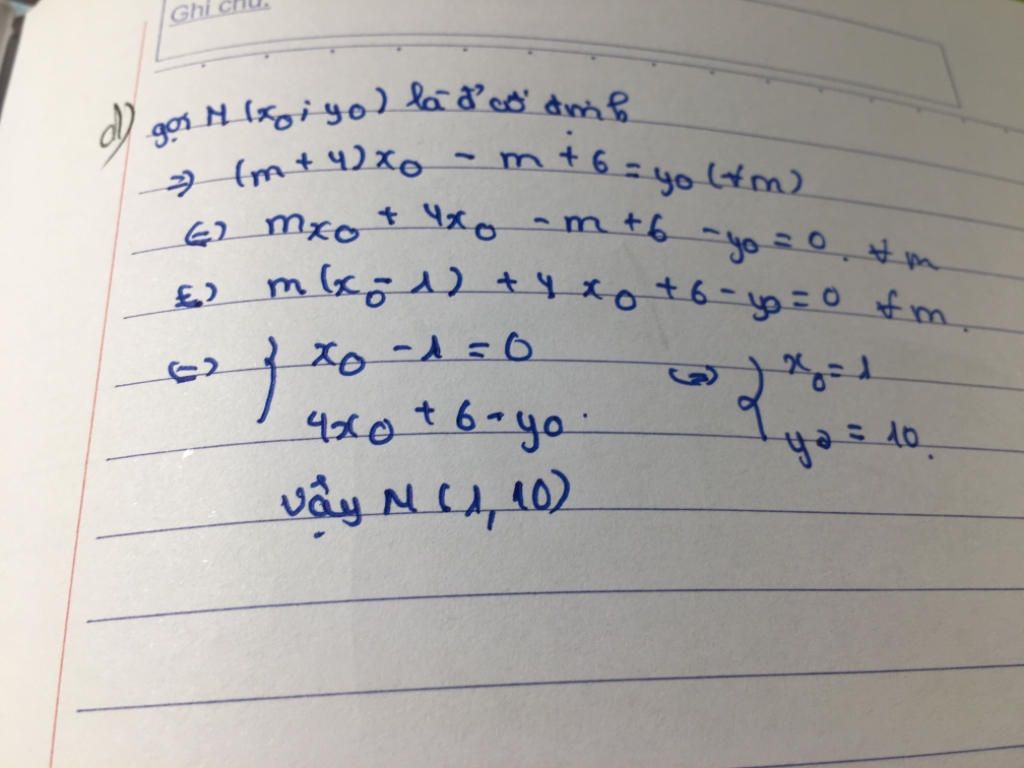 Ghi chú:
d) gọi M (x₀; y₀) là đ' cố định
=> (m + 4)x₀ - m + 6 = y₀ (∀m)
<=> mx₀ + 4x₀ - m + 6 - y₀ = 0. ∀m
<=> m(x₀ - 1) + 4x₀ + 6 - y₀ = 0 ∀m.
<=> { x₀ - 1 = 0 <=> { x₀ = 1
4x₀ + 6 - y₀. y₀ = 10.
vậy M (1, 10)